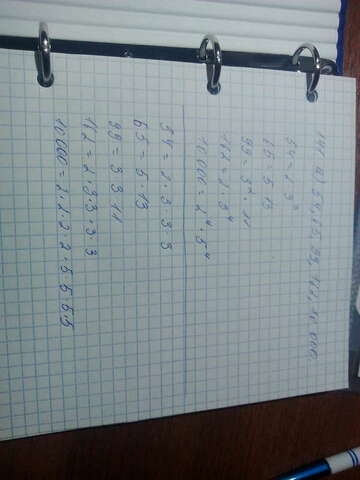 141. а) 54, 65, 99, 162, 10 000.
54 = 2 · 3³
65 = 5 · 13
99 = 3² · 11
162 = 2 · 3⁴
10 000 = 2⁴ · 5⁴
54 = 2 · 3 · 3 · 3
65 = 5 · 13
99 = 3 · 3 · 11
162 = 2 · 3 · 3 · 3 · 3
10 000 = 2 · 2 · 2 · 2 · 5 · 5 · 5 · 5